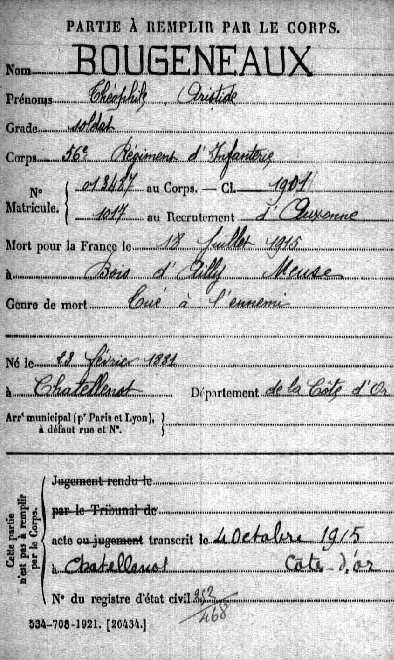 PARTIE À REMPLIR PAR LE CORPS.
Nom BOUGENEAUX
Prénoms Théophile Aristide
Grade soldat
Corps 56e Régiment d'Infanterie
N° Matricule. { 013487 au Corps. — Cl. 1901
1017 au Recrutement d'Auxonne
Mort pour la France le 18 juillet 1915
à Bois d'Ailly Meuse
Genre de mort Tué à l'ennemi
Né le février 1881
à Chatellenot Département de la Côte d'Or
Arrt municipal (pr Paris et Lyon), à défaut rue et N°. }
Cette partie n'est pas à remplir par le Corps.
Jugement rendu le
par le Tribunal de
acte ou jugement transcrit le 4 Octobre 1915
à Chatellenot Côte-d'or
N° du registre d'état civil
468
534-708-1921. [26434.]